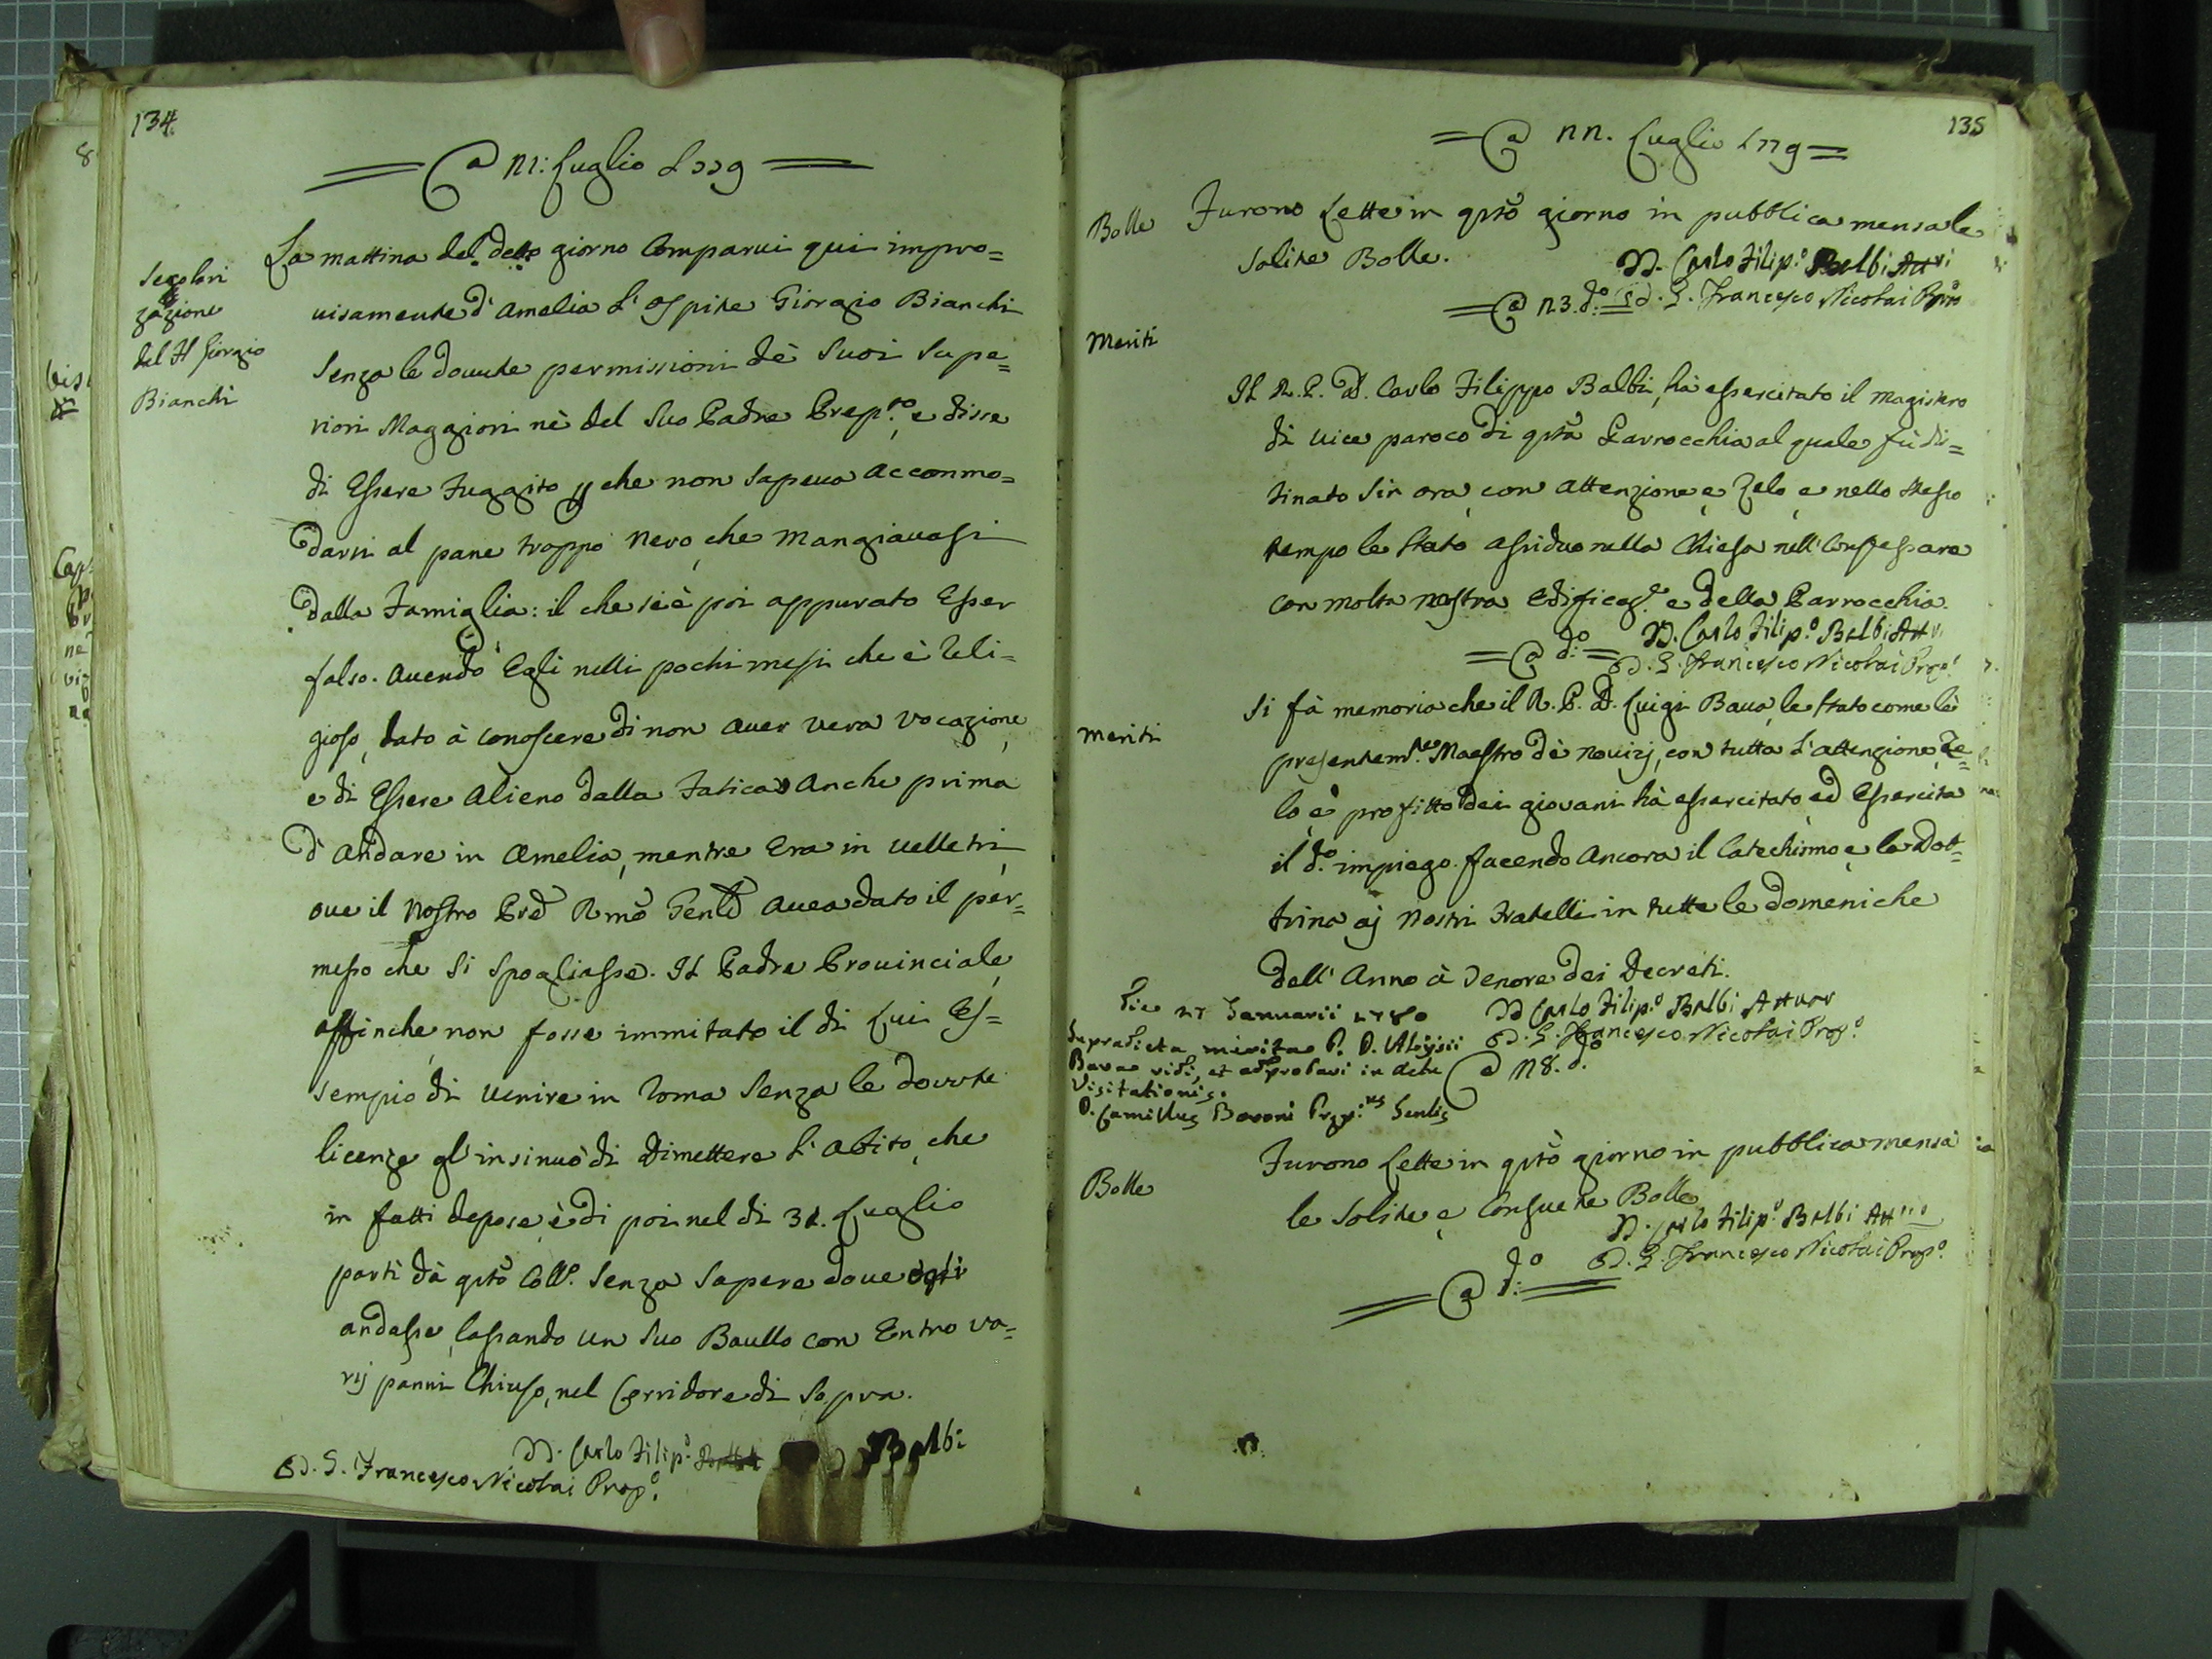 134
= a 21: Luglio 1779 =
Secolari
zazione
del H Giorgio
Bianchi
La mattina del detto giorno Comparui qui impro=
uisamente d'Amelia l'Ospite Giorgio Bianchi
senza le douute permissioni dè suoi supe=
riori Maggiori nè del suo Padre Prep.to, e disse
di Essere Fuggito che non sapeua accommo=
darsi al pane troppo nero, che mangiauasi
dalla Famiglia: il che si è poi appurato Esser
falso. Auendo Egli nelli pochi mesi che è Reli=
gioso, dato à conoscere di non auer uera vocazione
e di Essere alieno dalla Fatica anche prima
d'Andare in Amelia, mentre Era in Velletri
oue il Nostro Prē Rm̄o Gen̄le auea dato il per=
messo che si spogliasse. Il Padre Prouinciale,
affinche non fosse immitato il di Lui Es=
sempio di uenire in Roma senza le dovute
licenze gl'insinuò di dimettere l'abito, che
in fatti depose, è di poi nel di 31. Luglio
partì dà qsto Coll.o senza sapere doue egli
andasse, lassando un suo Baullo con Entro va=
rij panni Chiuso, nel Corridore di sopra.
D. Carlo Filip.o Balbi
D. G. Francesco Nicolai Prep.o
135
= a 22. Luglio 1779 =
Bolle
Furono Lette in qsto giorno in pubblica mensa le
solite Bolle.
D. Carlo Filip.o Balbi Att.ri
= a 23. d.o = D. G. Francesco Nicolai Prep.o
Meriti
Il R. P. D. Carlo Filippo Balbi, hà essercitato il magistero
di uice paroco di qsta Parrocchia al quale fù dis=
tinato sin ora, con attenzione, e zelo, e nello stesso
tempo le stato assiduo nella Chiesa nell'Confessare
con molta nostra Edificaz.e e della Parrocchia.
D. Carlo Filip.o Balbi Att.ri
= a d.o = D. G. Francesco Nicolai Prep.o
Meriti
Si fà memoria che il R. P. D. Luigi Baua, le stato come lè
presentem.te Maestro dè Nouizj, con tutta l'attenzione, Ze=
lo, e profitto dei giovani hà essercitato, ed Essercita
il d.o impiego facendo Ancora il Catechismo, e la Dot=
trina aj Nostri Fratelli in tutte le domeniche
dell'Anno à Tenore dei Decreti.
D. Carlo Filip.o Balbi Attuar
D. G. Francesco Nicolai Prep.o
Die 27 Januarii 1780
Supradicta merita P. D. Aloysii
Bavae vidi, et adprobavi in actu
Visitationis.
D. Camillus Bovoni Prep.us Genlis
a 28. d.o
Bolle
Furono Lette in qsto giorno in pubblica mensa
le solite, e Consuete Bolle
D. Carlo Filip.o Balbi Att.rio
D. G. Francesco Nicolai Prep.o
= a d.o =